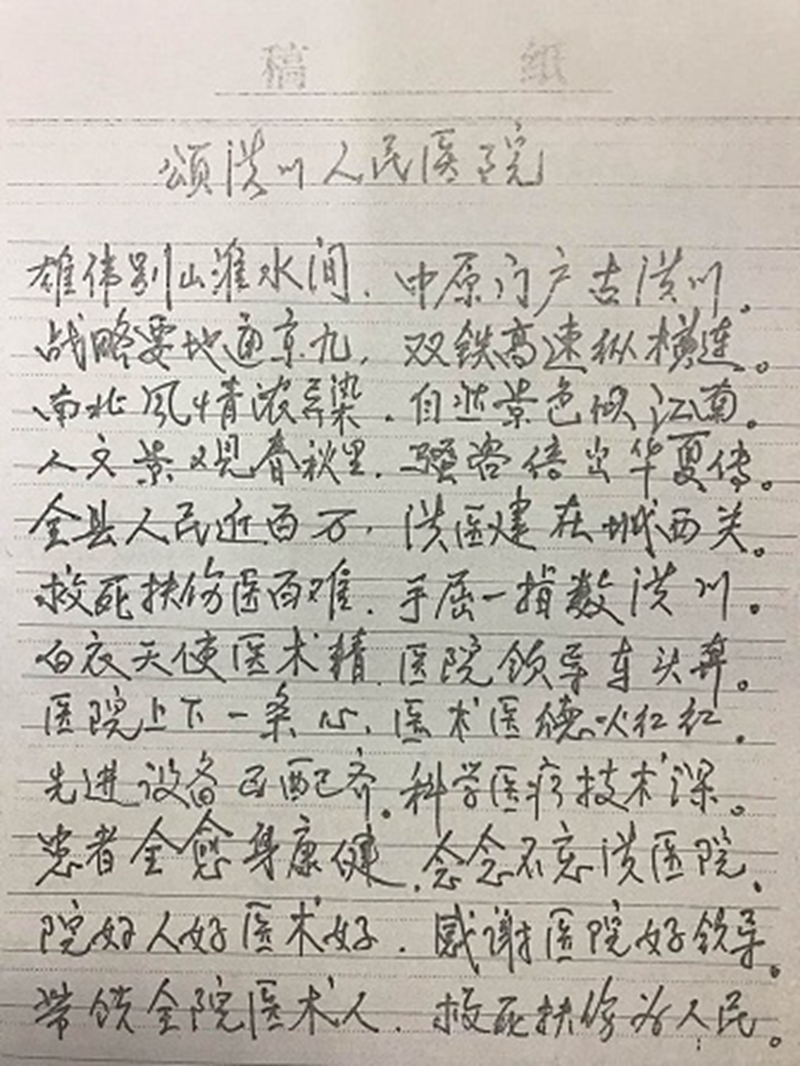 稿 纸
颂潢川人民医院
雄伟别山淮水间，中原门户古潢川。
战略要地通京九，双铁高速纵横连。
南北风情浓尽染，自然景色似江南。
人文景观春秋里，骚客倍出华夏传。
全县人民近百万，潢医建在城西关。
救死扶伤医百难，手屈一指数潢川。
白衣天使医术精，医院领导车头奔。
医院上下一条心，医术医德火红红。
先进设备已配齐。科学医疗技术深。
患者全愈身康健，念念不忘潢医院、
院好人好医术好．感谢医院好领导。
带领全院医术人．救死扶伤为人民。